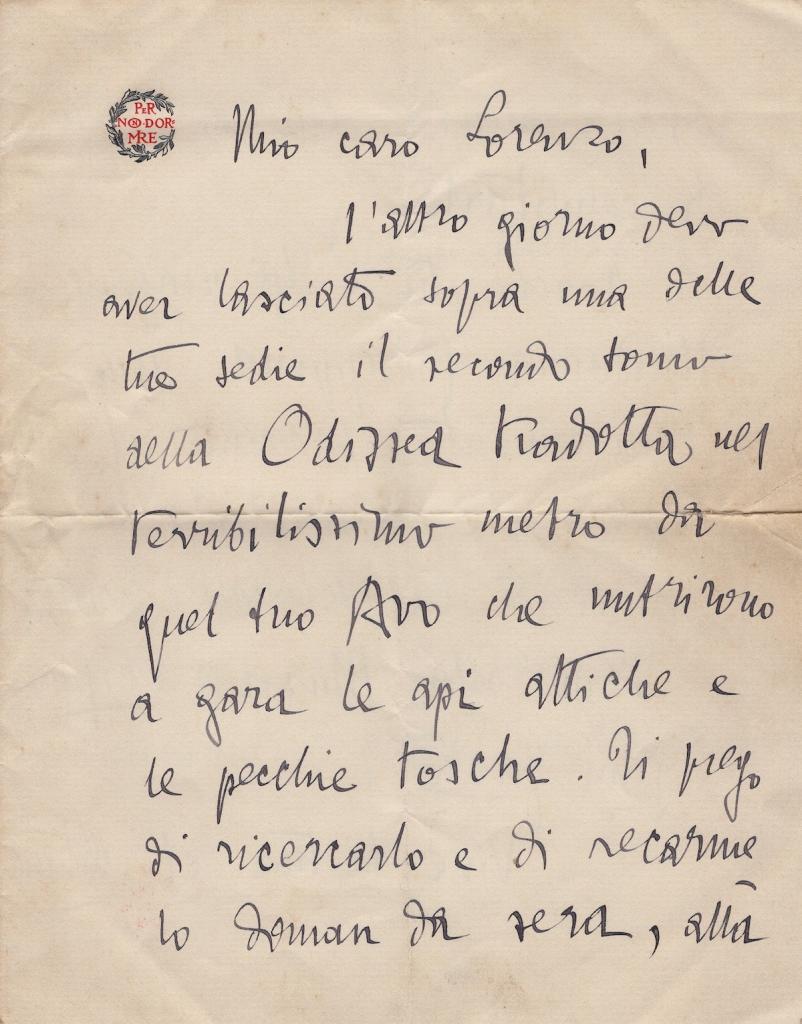 PER
NON DOR
MIRE
Mio caro Lorenzo,
l'altro giorno devo
aver lasciato sopra una delle
tue sedie il secondo tomo
della Odissea tradotta nel
terribilissimo metro da
quel tuo Avo che nutrirono
a gara le api attiche e
le pecchie tosche. Ti prego
di ricercarlo e di recarme
lo doman da sera, alla